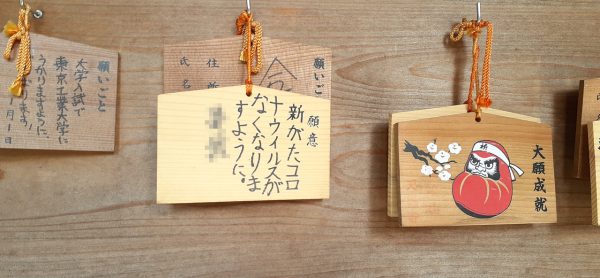 願いごと
大学入試で
東京工業大学に
うかりますように。
月1日
願いごと
合
住所
氏名
願意
新がたコロ
ナウィルスが
なくなりま
すように。
大願成就